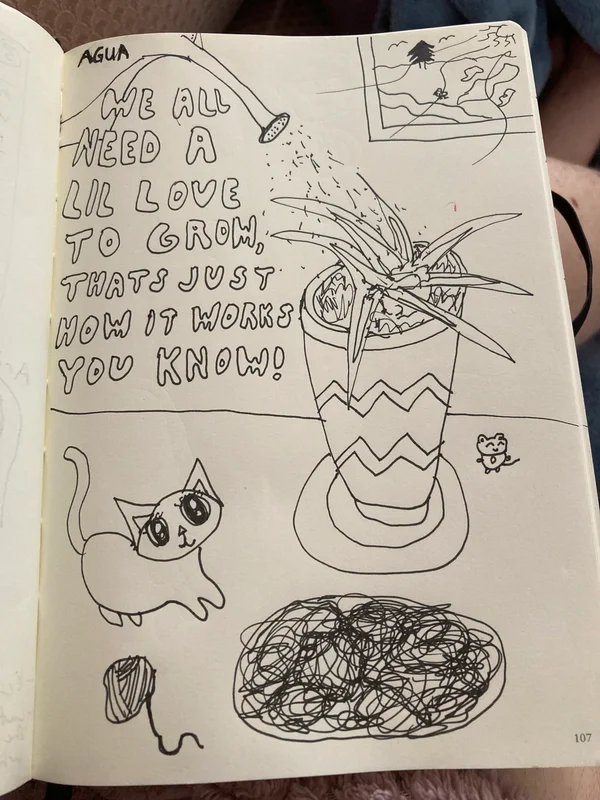 AGUA
WE ALL
NEED A
LIL LOVE
TO GROW,
THATS JUST
HOW IT WORKS
YOU KNOW!
107